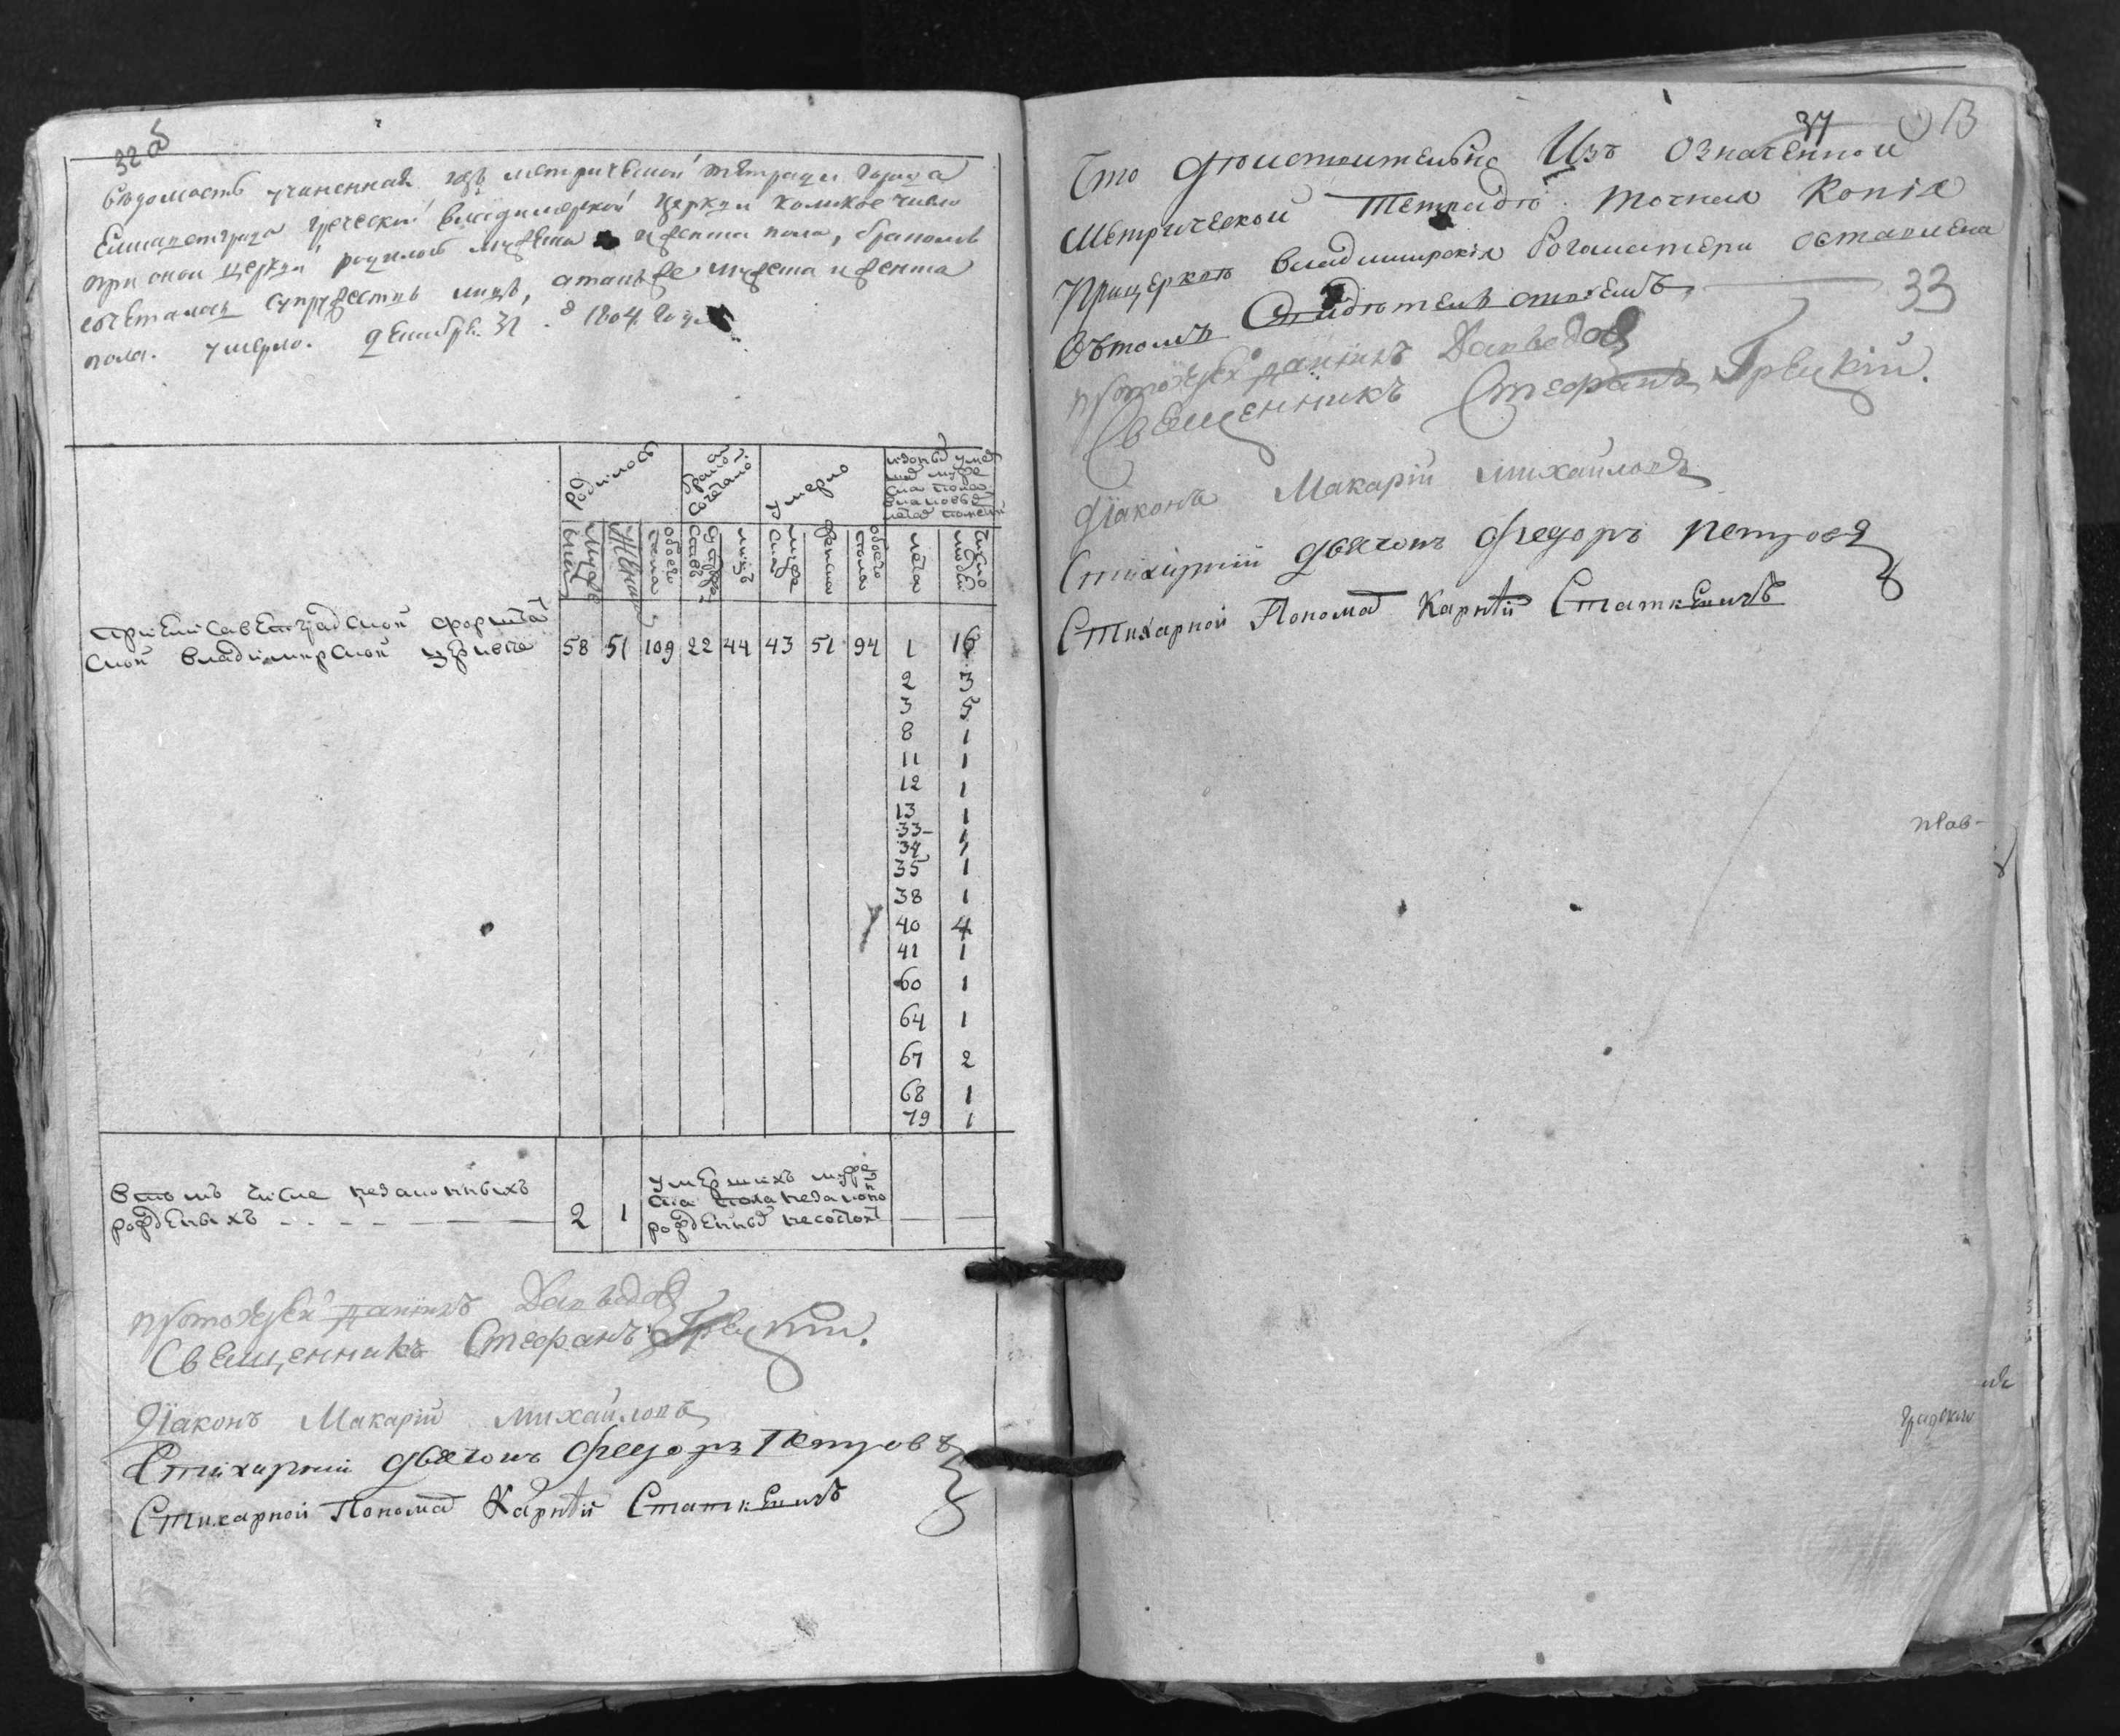 32 об
Ведомость учиненная изъ метрической тетради города
Елисаветграда греческой владимерской церкви коликое число
при оной церкви родилось мужеска и женска пола, бракомъ
сочеталось супружествъ лицъ, атакъ же мужеска и женска
пола. умерло. декабря 31 д 1804 году
родилось
бракомъ сочетало
умерло
мужеска
женска
обоего пола
супружествъ
лицъ
мужеска
женска
обоего пола
лета
число людей
при Елисаветградской форшта
ской владимирской церкве 58 51 109 22 44 43 51 94 1 16
2 3
3 5
8 1
11 1
12 1
13 1
33 1
34 1
35 1
38 1
40 4
41 1
60 1
64 1
67 2
68 1
79 1
втомъ числе незаконныхъ
рожденыхъ 2 1
умершихъ муже
ска пола незакон
рожденныхъ несостоитъ
протоіерей Даніилъ Давыдовъ
Священникъ Стефанъ Грецкій.
Діаконъ Макарій Михайловъ
Стихарний дьячокъ Федоръ Петровъ
Стихарной Понома Карпъ
37
13
Что действительно Изъ означенной
Метрической Тетради точная Копія
Прицеркве Владимирскія Богоматери оставлена
Вътомъ Свидетельствуемъ
33
протоіерей Даніилъ Давыдовъ
Священникъ Стефанъ Грецкій.
Діаконъ Макарій Михайловъ
Стихарний дьячокъ Федоръ Петровъ
Стихарной Понома Карпъ